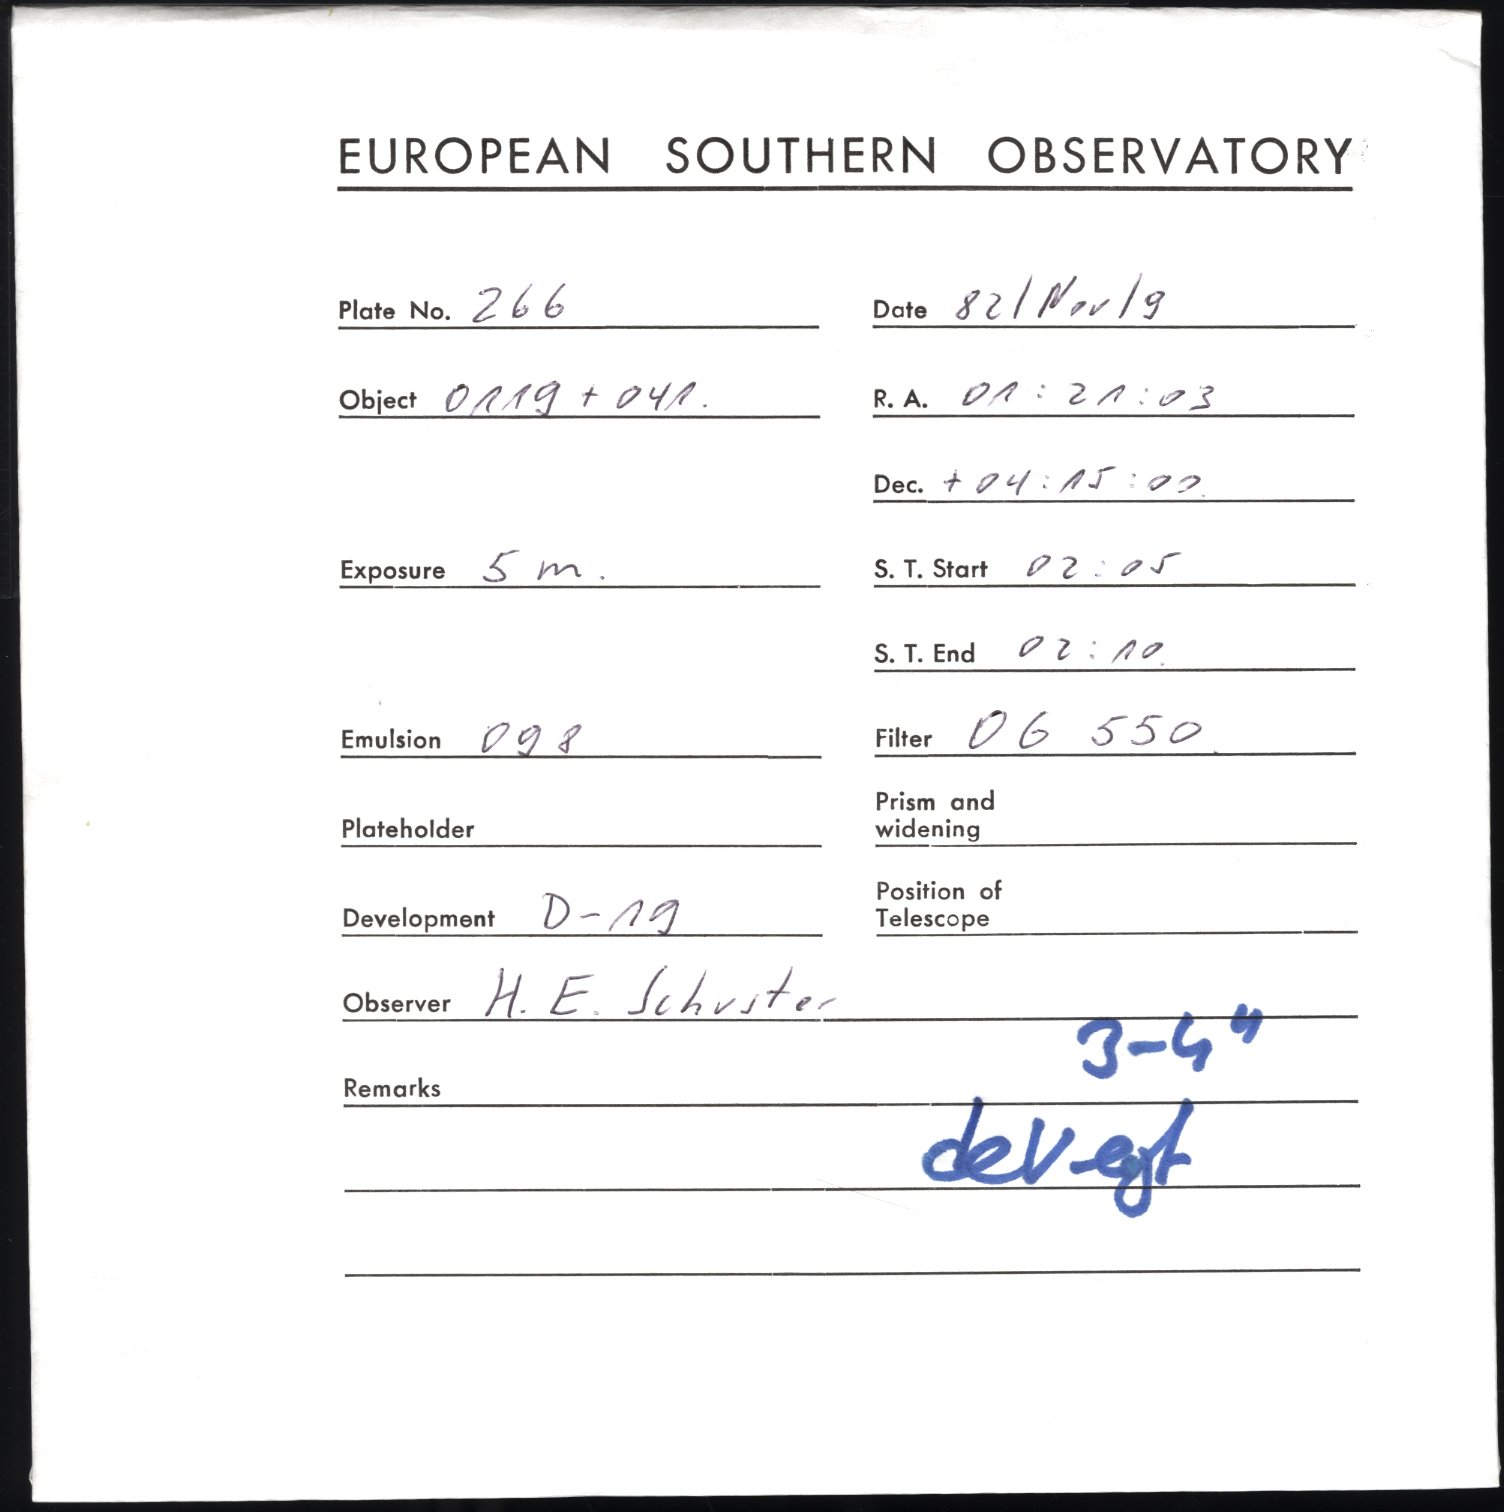 EUROPEAN SOUTHERN OBSERVATORY
Plate No. 266
Date 82/Nov/9
Object 0119+041.
R. A. 01:21:03
Dec. +04:15:00
Exposure 5 m.
S. T. Start 02:05
S. T. End 02:10
Emulsion 098
Filter OG 550
Plateholder
Prism and
widening
Development D-19
Position of
Telescope
Observer H. E. Schuster
3-4"
Remarks
deVegt